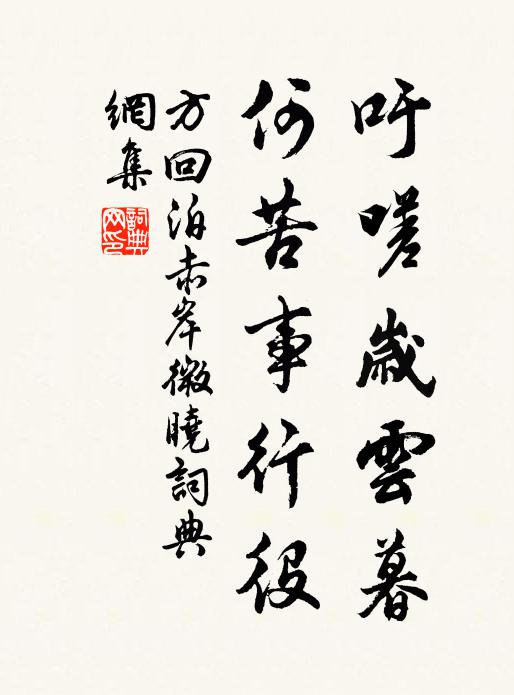 吁嗟歲雲暮
何苦事行役
方回泊赤岸微曉詞典
網集
詞典网印